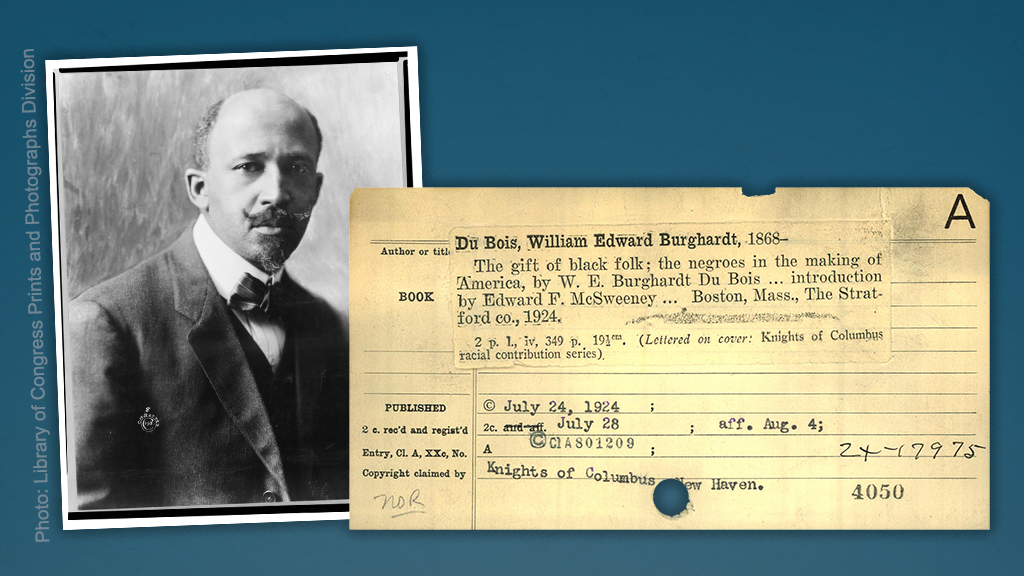 Photo: Library of Congress Prints and Photographs Division
A
Author or titl
Du Bois, William Edward Burghardt, 1868–
The gift of black folk; the negroes in the making of
America, by W. E. Burghardt Du Bois ... introduction
BOOK
by Edward F. McSweeney ... Boston, Mass., The Strat-
ford co., 1924.
2 p. l., iv, 349 p. 19½cm. (Lettered on cover: Knights of Columbus
racial contribution series)
PUBLISHED
© July 24, 1924 ;
2 c. rec'd and regist'd
2c. and aff. July 28 ; aff. Aug. 4;
©ClA801209
Entry, Cl. A, XXc, No.
A ; 24-17975
Copyright claimed by
Knights of Columbus New Haven.
NOR
4050